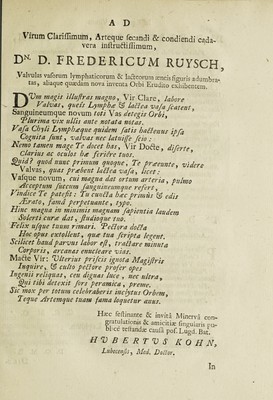 A D
Virum Clarissimum, Arteque secandi & condiendi cada-
vera instructissimum,
DN. D. FREDERICUM RUYSCH,
Valvulas vasorum lymphaticorum & lacteorum æneis figuris adumbra-
tas, aliaque quædam nova inventa Orbi Erudito exhibentem.
DUm magis illustras magno, Vir Clare, labore
Valvas, queis Lymphæ & lactea vasa scatent,
Sanguineumque novum toti Vas detegis Orbi,
Plurima vix ullis ante notata notas.
Vasa Chyli Lymphæque quidem satis hactenus ipsa
Cognita sunt, valvas nec latuisse scio:
Nemo tamen mage Te docet has, Vir Docte, diserte,
Clarius ac oculos hæ feriêre tuos.
Quid? quod nunc primum quoque, Te præeunte, videre
Valvas, quas præbent lactea vasa, licet:
Valque novum, cui magna dat ortum arteria, pulmo
Acceptum succum sanguineumque refert,
Vindice Te patefit: Tu cuncta hæc primùs & edis
Ærato, famâ perpetuante, typo.
Hinc magna in minimis magnam sapientia laudem
Solerti curæ dat, studioque tuo.
Felix usque tuum rimari. Pectora docta
Hoc opus extollent, quæ tua scripta legent.
Scilicet haud parvus labor est, tractare minuta
Corporis, arcanas enucleare vias.
Macte Vir: Ulterius priscis ignota Magistris
Inquire, & culto pectore profer opes
Ingenii reliquas, ceu dignus luce, nec ultra,
Qui tibi detexit fors peramica, preme.
Sic mox per totum celebraberis inclytus Orbem,
Teque Artemque tuam fama loquetur anus.
Hæc festinante & invitâ Minervâ con-
gratulationis & amicitiæ singularis pu-
bli-cè testandæ causâ pos. Lugd. Bat.
HUBERTUS KOHN,
Lubecensis, Med. Doctor.
In